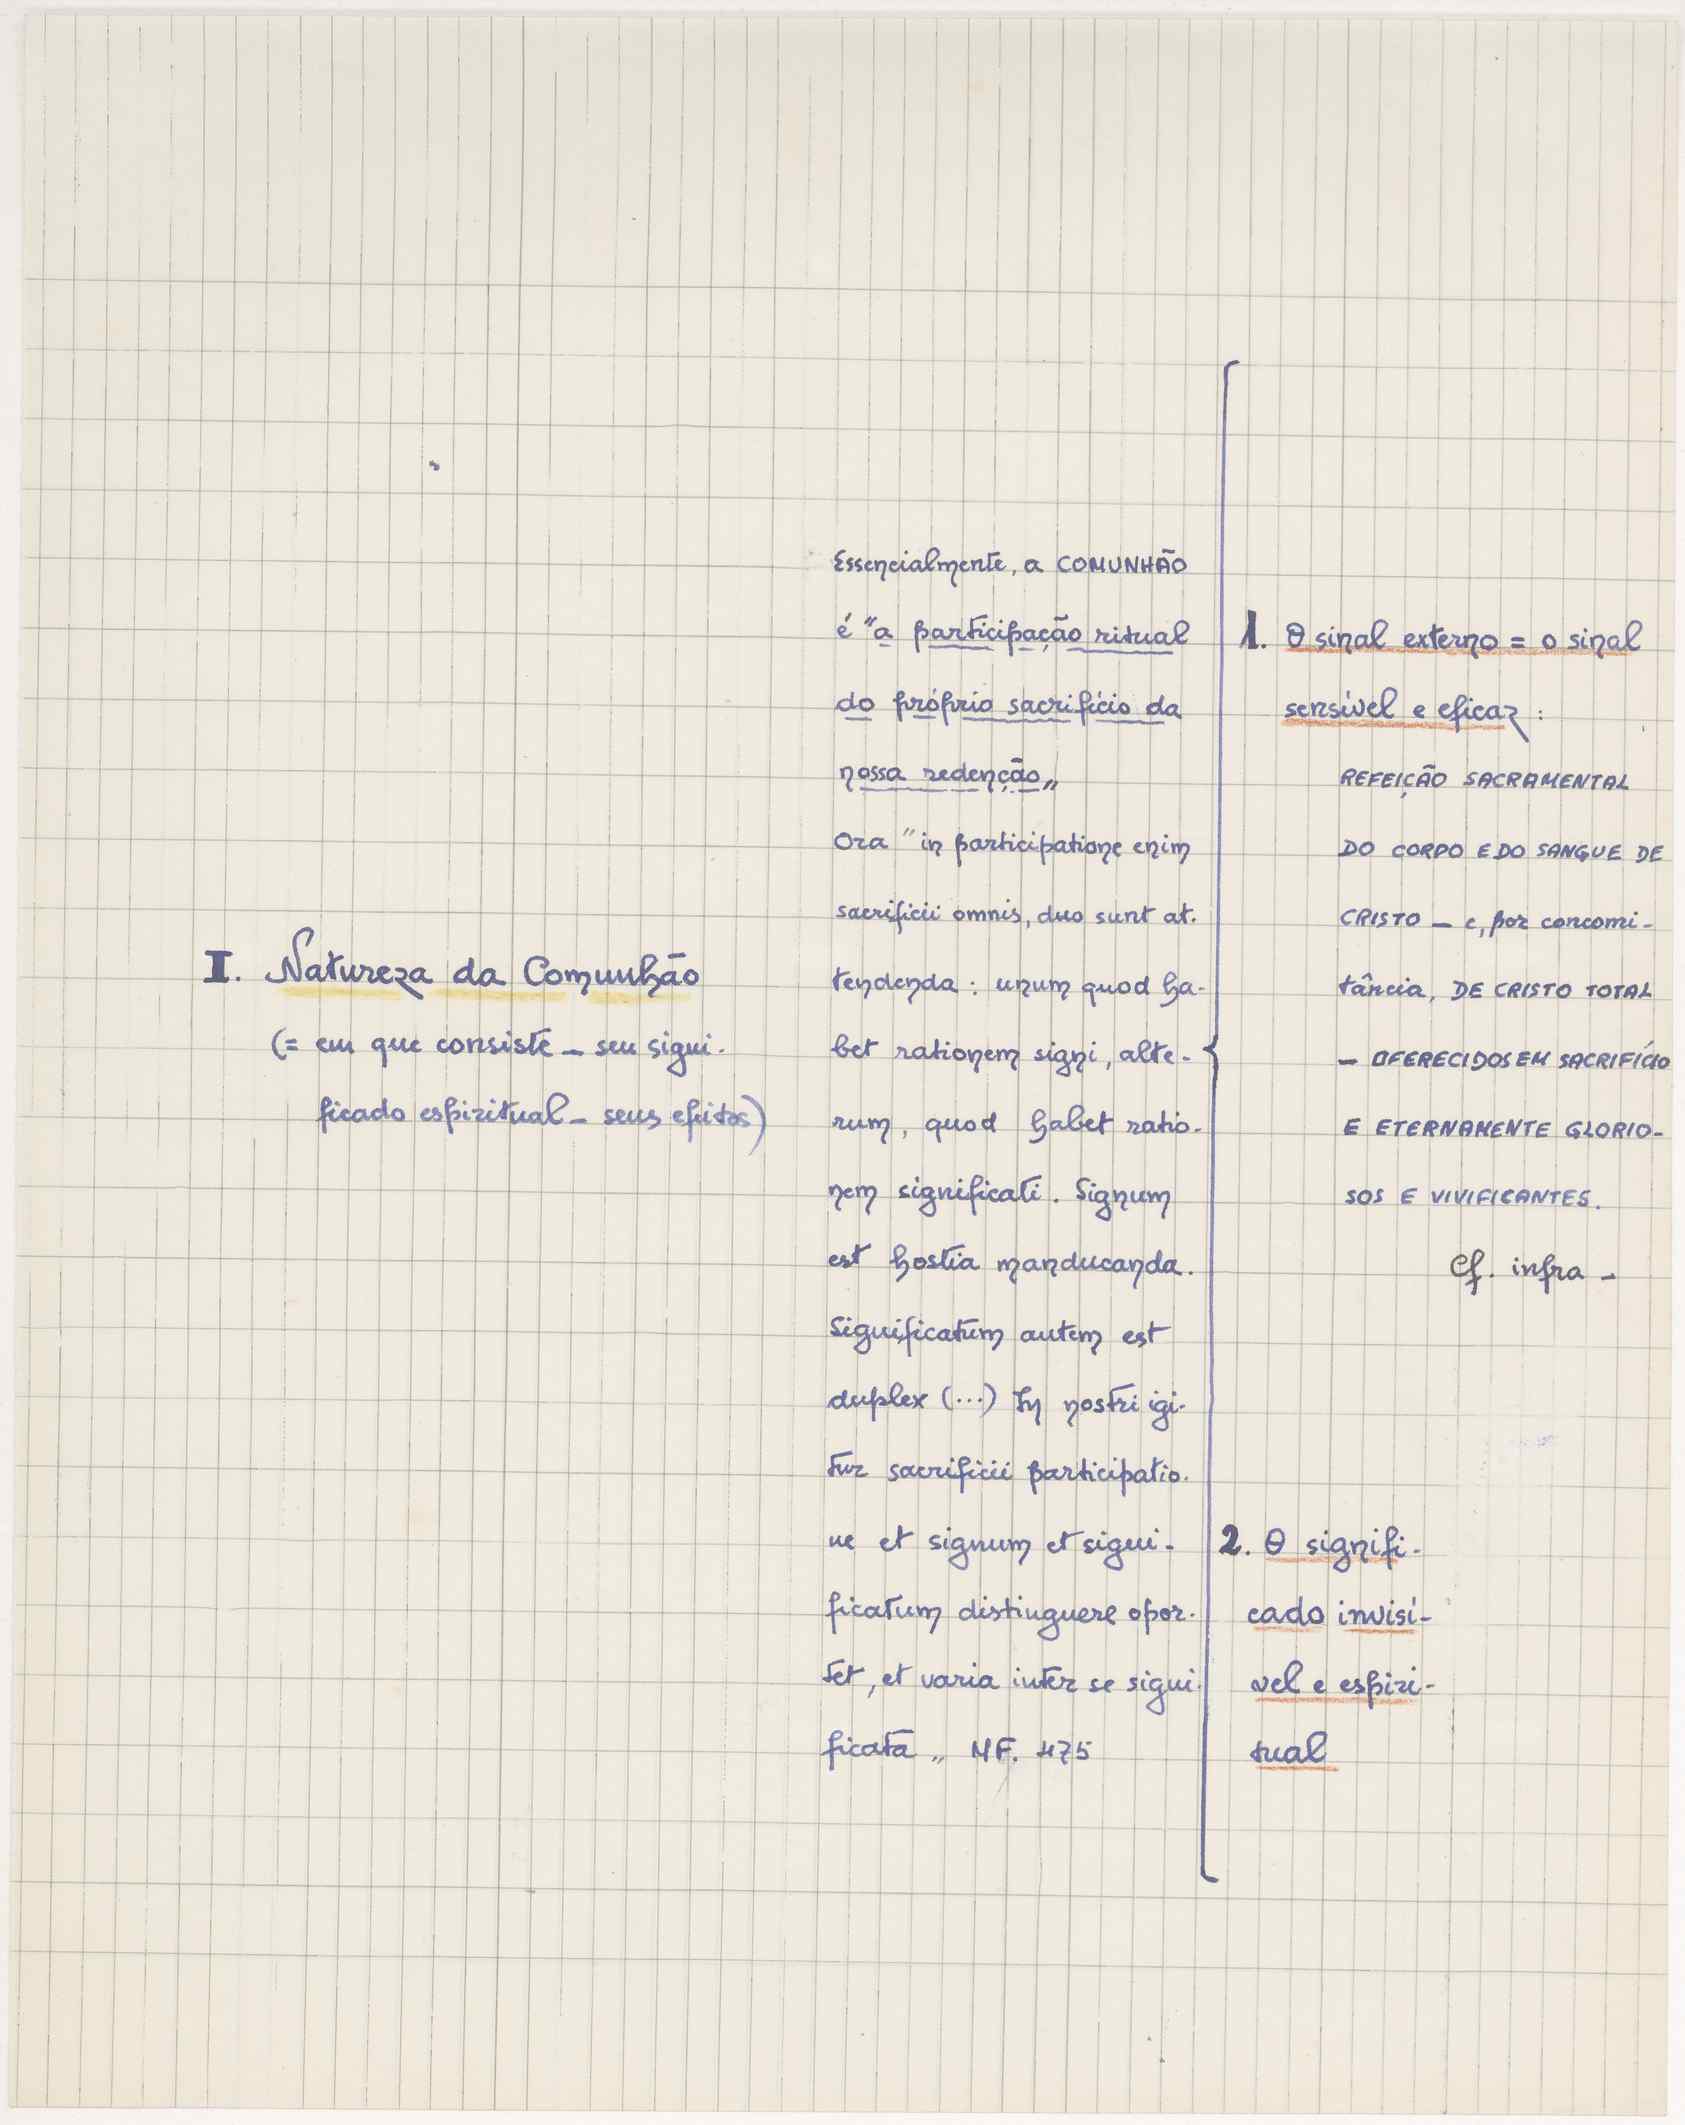 I. Natureza da Comunhão
(= em que consiste – seu signi-
ficado espiritual – seus efeitos)
Essencialmente, a COMUNHÃO
é "a participação ritual
do próprio sacrifício da
nossa redenção"
Ora "in participatione enim
sacrificii omnis, duo sunt at-
tendenda : unum quod ha-
bet rationem signi, alte-
rum, quod habet ratio-
nem significati. Signum
est hostia manducanda.
Significatum autem est
duplex (...) In nostri igi-
tur sacrificii participatio-
ne et signum et signi-
ficatum distinguere opor-
tet, et varia inter se signi-
ficata" MF. 475
1. O sinal externo = o sinal
sensível e eficaz :
REFEIÇÃO SACRAMENTAL
DO CORPO E DO SANGUE DE
CRISTO – e, por concomi-
tância, DE CRISTO TOTAL
– OFERECIDOS EM SACRIFÍCIO
E ETERNAMENTE GLORIO-
SOS E VIVIFICANTES.
Cf. infra –
2. O signifi-
cado invisí-
vel e espiri-
tual